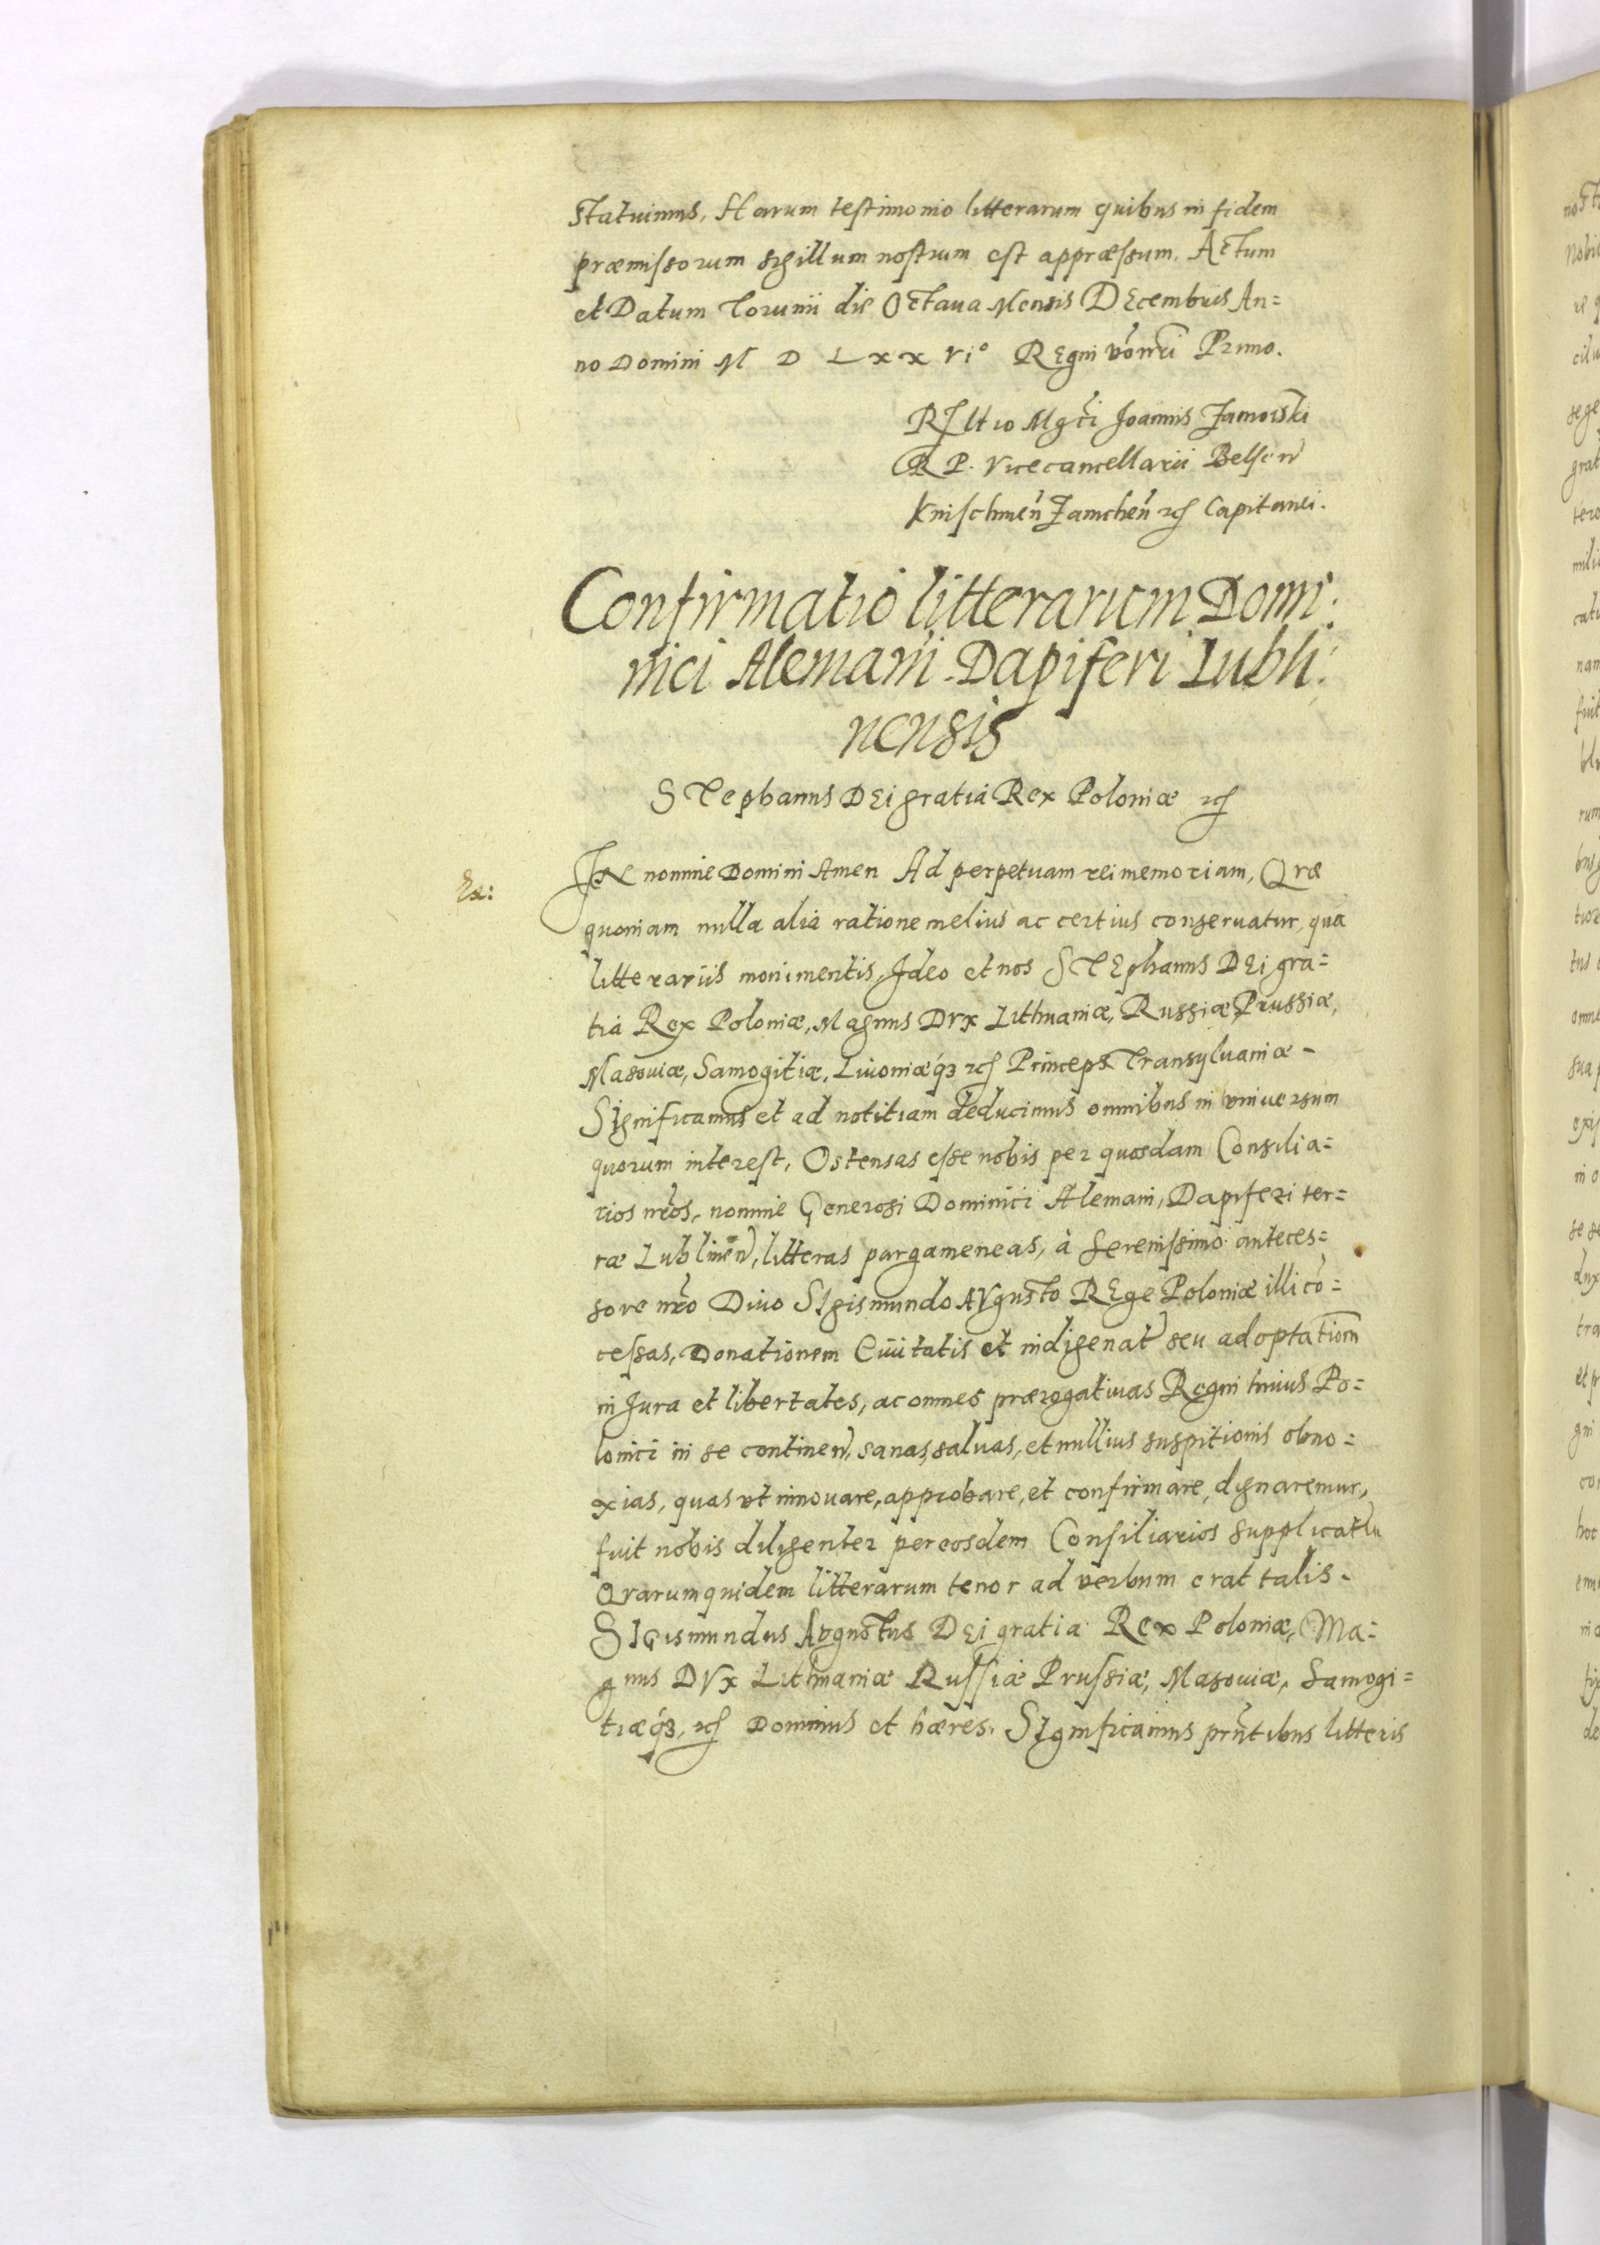 Statuimus, Harum testimonio litterarum quibus in fidem
præmissorum sigillum nostrum est appræssum. Actum
et Datum Torunii die Octaua Mensis DEcembris An=
no Domini M D LXX VI° REgni vero nri Primo.
Joannis Zamoiski
R P. Vicecancellarii Belsen
Knischinen Zamchen Capitanei.
Confirmatio litterarum Domi:
nici Alemani Dapiferi Lubli:
nensis
STephanus DEi gratia Rex Poloniæ
Ex:
IN nomine Domini Amen Ad perpetuam rei memoriam, Qræ
quoniam nulla alia ratione melius ac certius conseruatur, quā
litterariis monimentis, Ideo et nos STEphanus DEi gra=
tia Rex Poloniæ, Magnus DVx Lithuaniæ, Russiæ, Prussiæ,
Masouiæ, Samogitiæ, Liuoniæq3 Princeps Transyluaniæ -
SIgnificamus et ad notitiam deducimus omnibus in vniuersum
quorum interest, Ostensas esse nobis per quosdam Consilia=
rios nr̄os, nomine Generosi Dominici Alemani, Dapiferi ter=
ræ Lublinen, litteras pargameneas, à Serenissimo anteces=
sore nr̄o Diuo SIgismundo AVgusto REge Poloniæ illi cō=
cessas, Donationem Ciuitatis et indigenat seu adoptationem
in Jura et libertates, ac omnes prærogatiuas Regni huius Po=
lonici in se continen, sanas, saluas, et nullius suspitionis obno=
xias, quas vt innouare, approbare, et confirmare, dignaremur,
fuit nobis diligenter per eosdem Consiliarios supplicatū
Qvarumquidem litterarum tenor ad verbum erat talis -
SIGismundus AVgustus DEi gratia Rex Poloniæ, Ma=
gnus DVx Lithuaniæ Russiæ Prussiæ, Masouiæ, Samogi=
tiæq3, Dominus et hæres. SIgnificamus prn̄tibus litteris